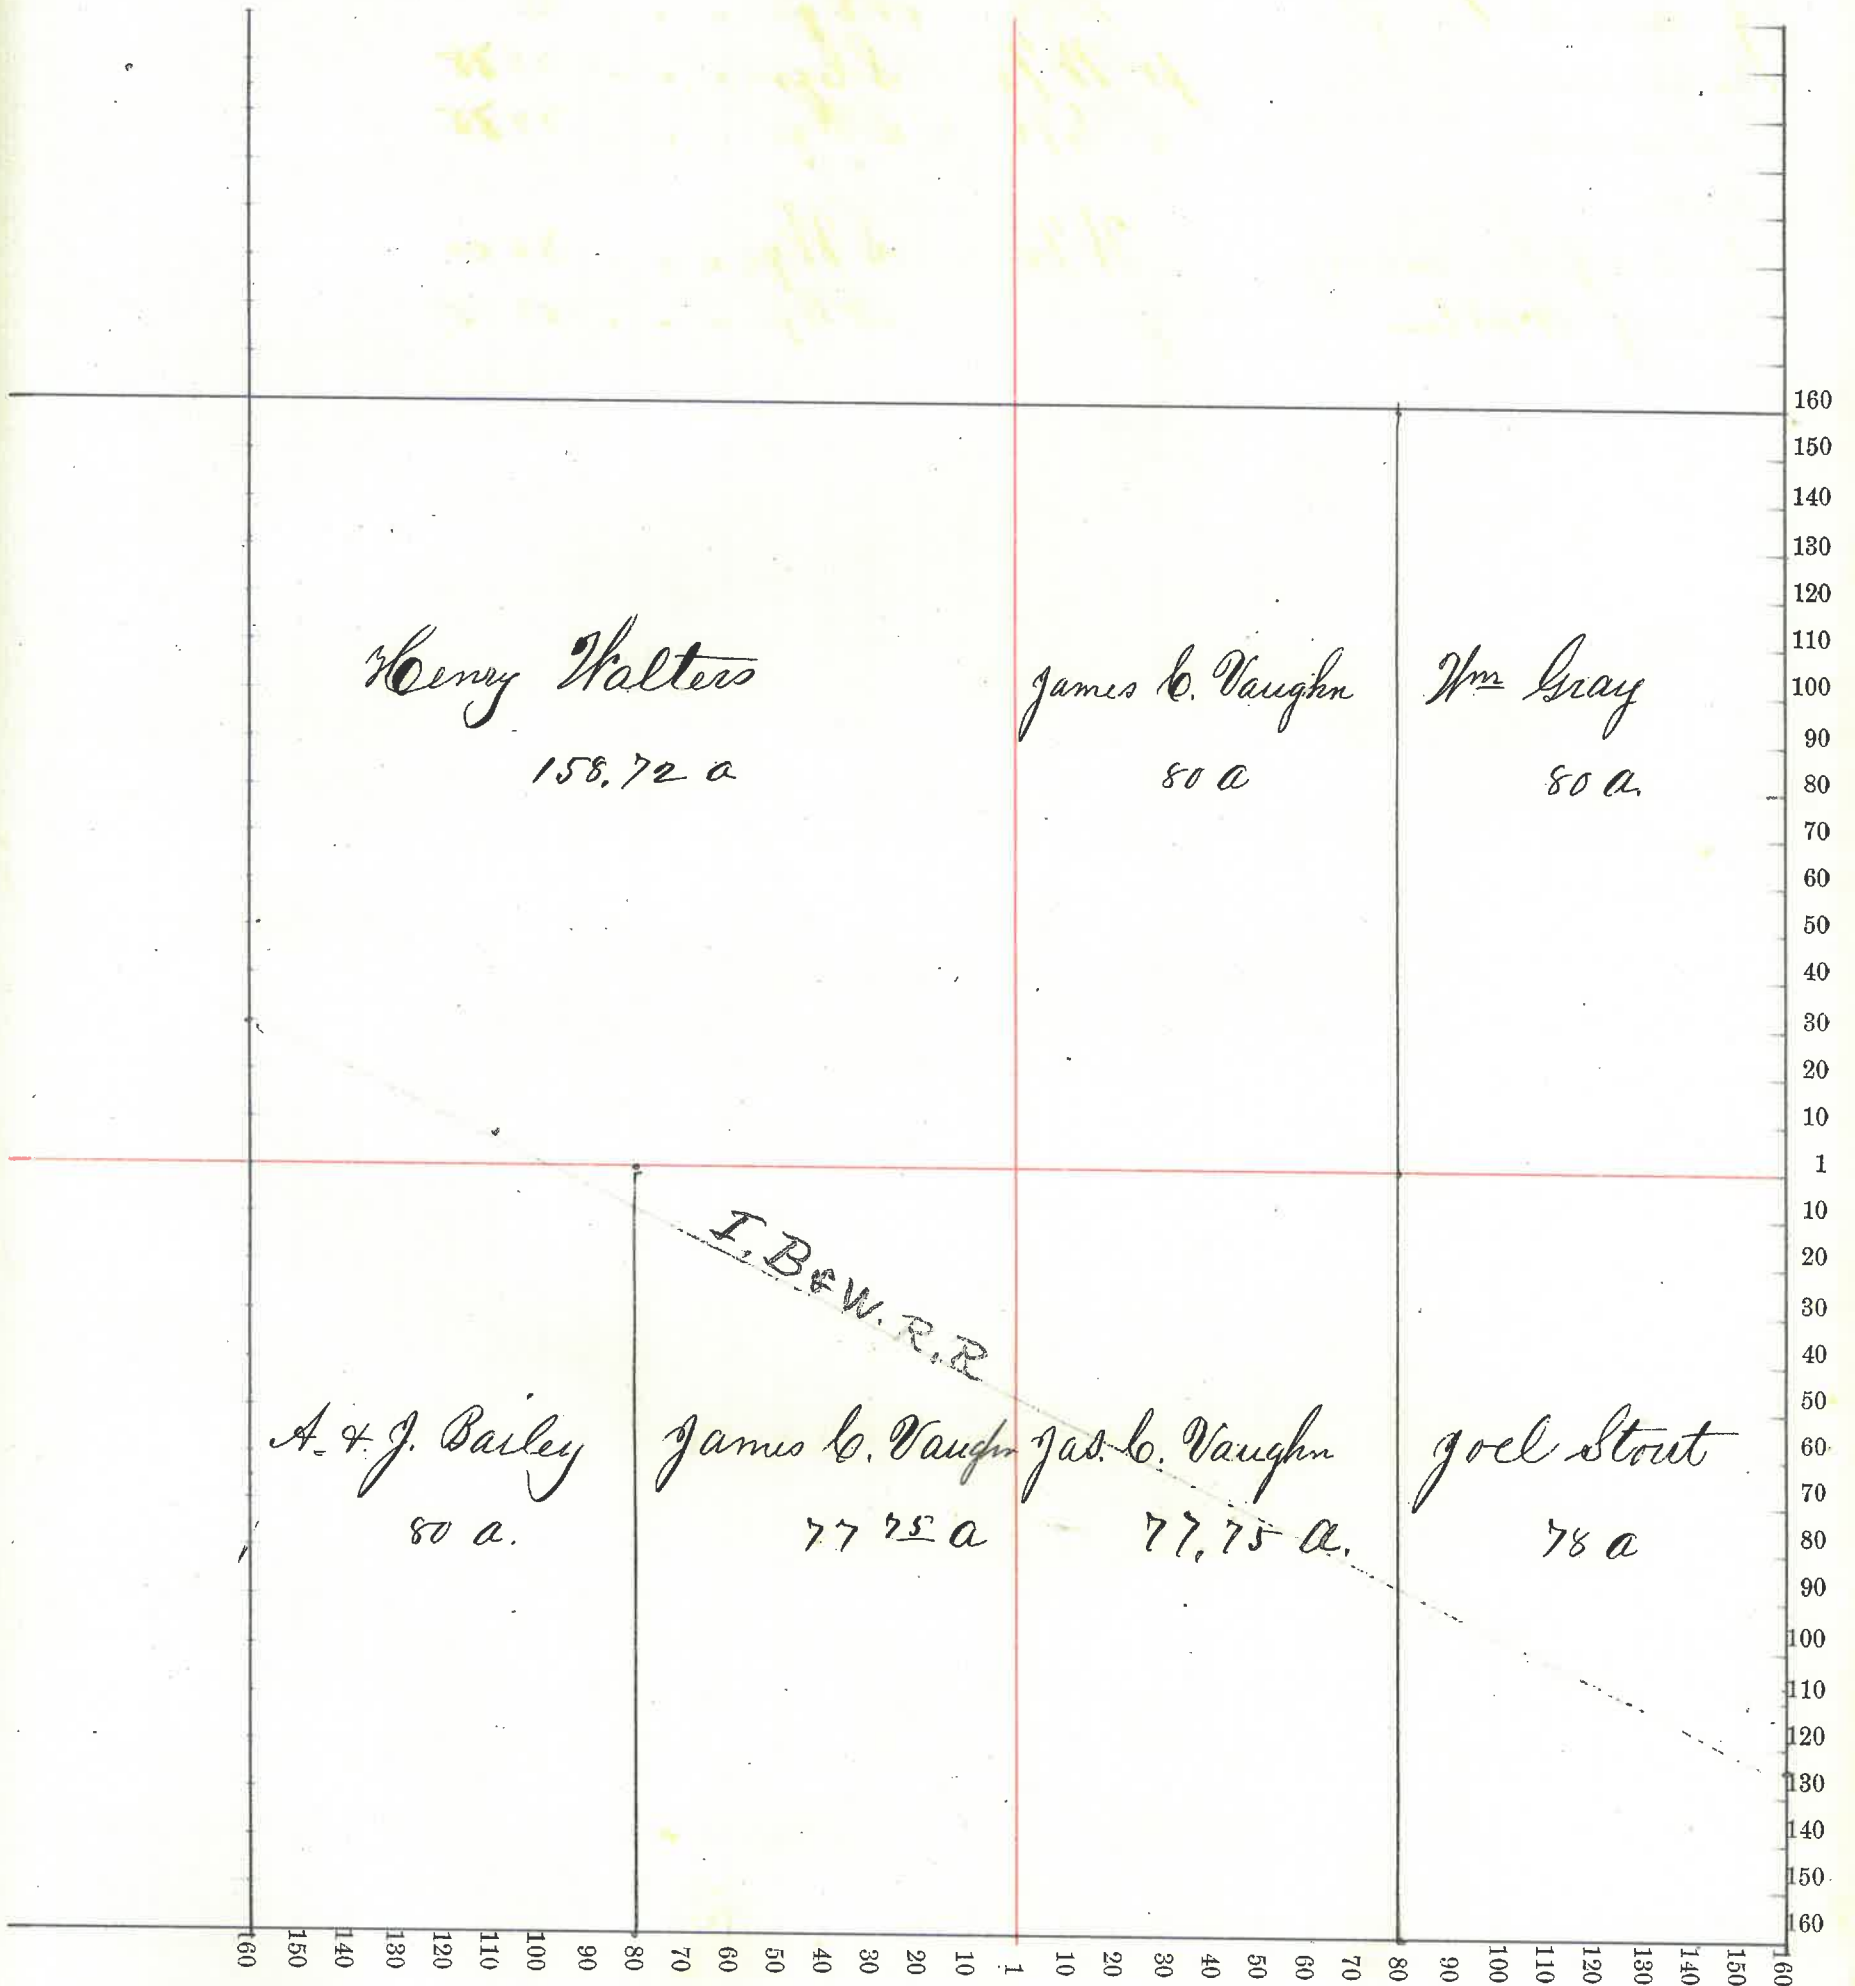 Henry Walters
158.72 a
James C. Vaughn
80 a
Wm Gray
80 a.
I. B & W. R. R
A. & J. Bailey
80 a.
James C. Vaughn
77 75 a
Jas. C. Vaughn
77.75 a.
Joel Stout
78 a
160
150
140
130
120
110
100
90
80
70
60
50
40
30
20
10
1
10
20
30
40
50
60
70
80
90
100
110
120
130
140
150
160
160 150 140 130 120 110 100 90 80 70 60 50 40 30 20 10 1 10 20 30 40 50 60 70 80 90 100 110 120 130 140 150 160